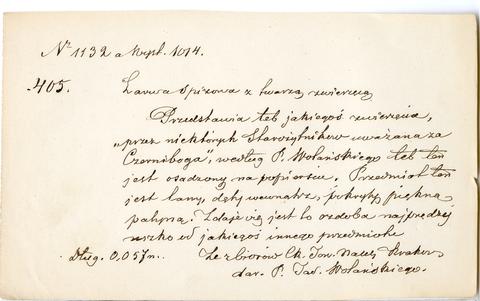 Nr 1132 a Kspl. 1074.
405. Larwa spiżowa z twarzą zwierzęcą
Przedstawia łeb jakiegoś zwierzęcia,
„przez niektórych Starożytników uważana za
Czorniboga", według P. Wolańskiego łeb ten
jest osadzony na popiersiu. Przedmiot ten
jest lany, dęty wewnątrz, pokryty piękną
patyną. Zdaje się jest to ozdoba najprędzej
uszko od jakiegoś innego przedmiotu
Dług. 0,057 m. Ze zbiorów Ck. Tow. Nauk. Krakow.
dar. P. Tad. Wolańskiego.